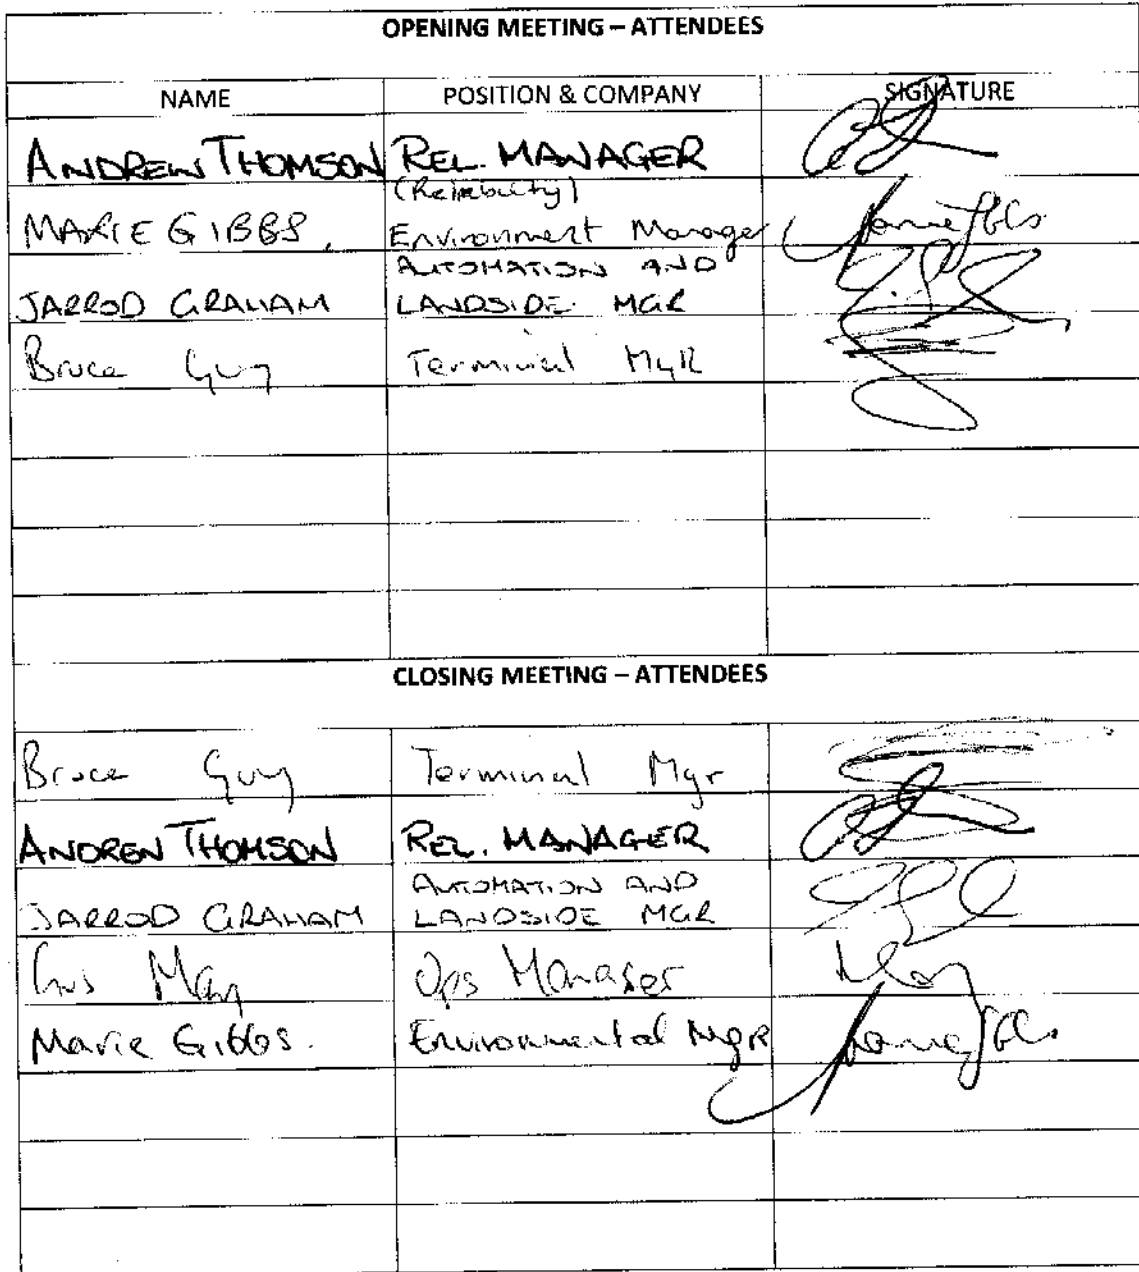 OPENING MEETING – ATTENDEES
NAME POSITION & COMPANY SIGNATURE
ANDREW THOMSON REL. MANAGER
(Reliability)
MARIE GIBBS. Environment Manager
AUTOMATION AND
JARROD GRAHAM LANDSIDE MGR
Bruce Guy Terminal MgR
CLOSING MEETING – ATTENDEES
Bruce Guy Terminal Mgr
ANDREW THOMSON REL. MANAGER
AUTOMATION AND
JARROD GRAHAM LANDSIDE MGR
May Ops Manager
Marie Gibbs. Environmental MgR